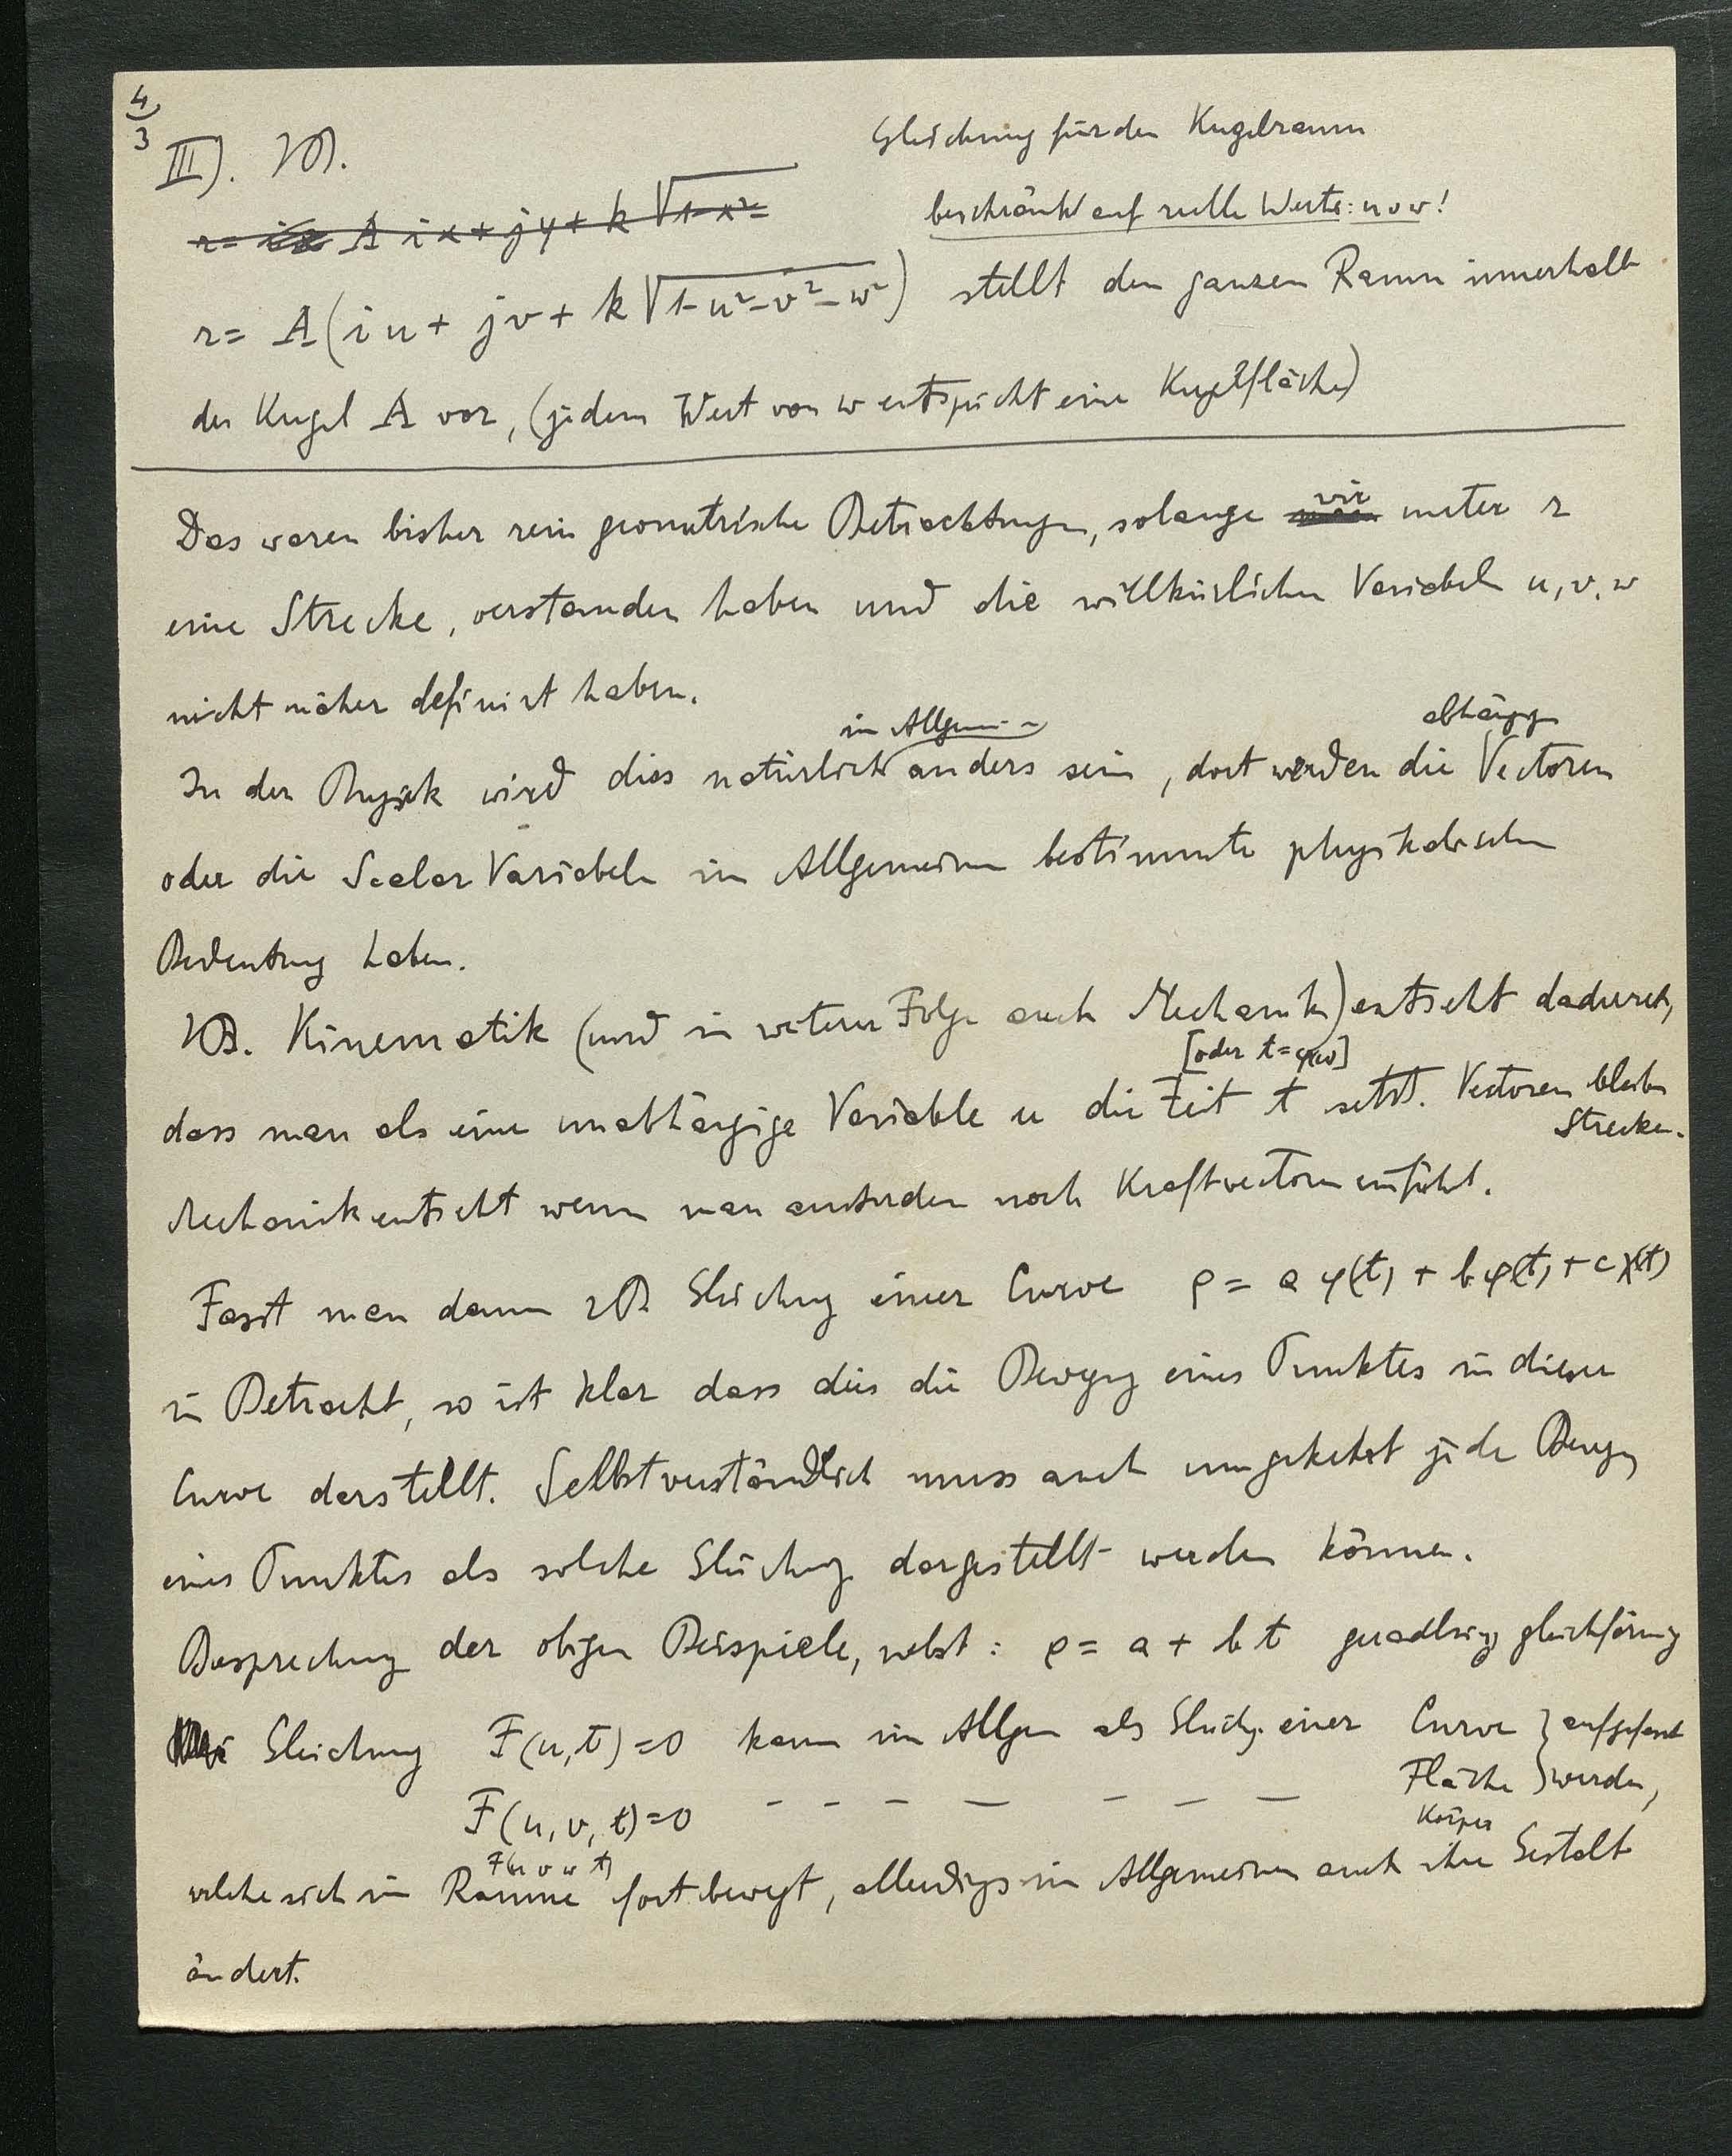 4
3
III). zB.
Gleichung für den Kugelraum
r= ix A ix + jy + k √1-x²=
beschränkt auf reelle Werte: u v w!
r= A(iu + jv + k √1-u²-v²-w²) stellt den ganzen Raum innerhalb
der Kugel A vor, (jedem Wert von w entspricht eine Kugelfläche)
Das waren bisher rein geometrische Betrachtungen, solange wir unter r
eine Strecke, verstanden haben und die willkürlichen Variabeln u, v, w
nicht näher definirt haben.
im Allgemein
abhängigen
In der Physik wird dies natürlich anders sein, dort werden die Vectoren
oder die Scalar Variabeln im Allgemeinen bestimmte physikalischen
Bedeutung haben.
zB. Kinematik (und in weiterer Folge auch Mechanik) entsteht dadurch,
[oder t=φ(u)]
dass man als eine unabhängige Variable u die Zeit t setzt. Vectoren bleiben
Strecken.
Mechanik entsteht wenn man ausserdem noch Kraftvectoren einführt.
Fasst man dann zB Gleichung einer Curve ρ = a φ(t) + b φ(t) + c χ(t)
in Betracht, so ist klar dass dies die Bewegung eines Punktes in dieser
Curve darstellt. Selbstverständlich muss auch umgekehrt jede Bewegung
eines Punktes als solche Gleichung dargestellt werden können.
Besprechung der obigen Beispiele, nebst: ρ = a + b t geradlinig gleichförmig
Gleichung F(u,t)=0 kann im Allgem als Gleichg. einer Curve } aufgefasst
F(u, v, t)=0 - - - - - - - Fläche } werden,
F(u v w t)
Körper
welche sich im Raume fortbewegt, allerdings im Allgemeinen auch ihre Gestalt
ändert.